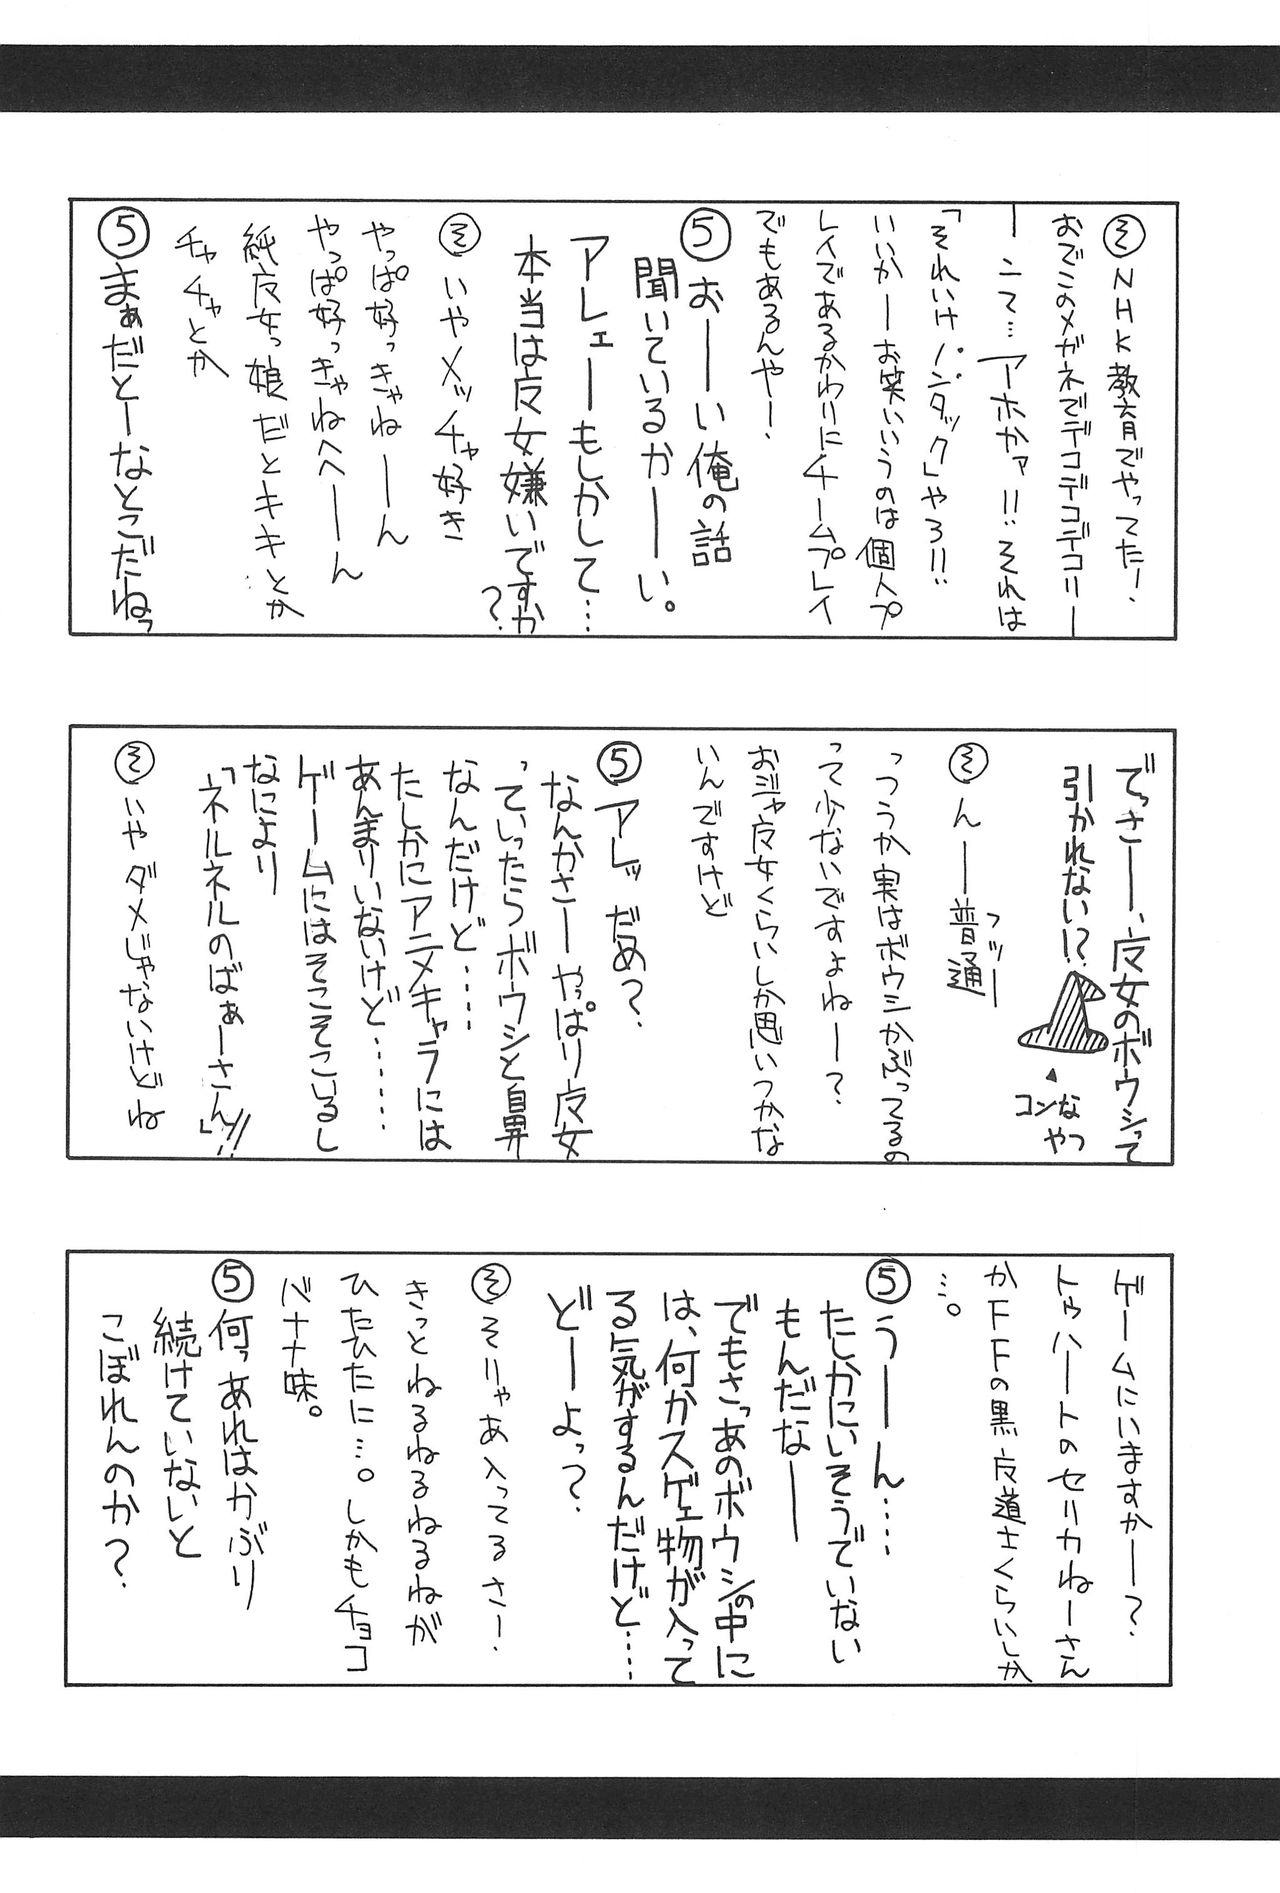 ㋞NHK教育でやってた!
おでこのメガネでデコデコデコリー
ーンて…アーホかァ!!それは
「それいけノンタック」やろ!!
いいかーお笑いいうのは個人プ
レイであるかわりにチームプレイ
でもあるんやー!
⑤おーい俺の話
聞いているかーい。
アレェーもしかして…
本当は魔女嫌いですか
?
㋞いやメッチャ好き
やっぱ好っきゃねーん
やっぱ好っきゃねへーん
純魔女っ娘だとキキとか
チャチャとか
⑤まぁだとーなとこだねっ
でっさー、魔女のボウシって
引かれない!?
コンな
やつ
㋞んー普通
フツー
っつうか実はボウシかぶってるの
って少ないですよねー?
おジャ魔女くらいしか思いつかな
いんですけど
⑤アレッだめ?
なんかさーやっぱり魔女
っていったらボウシと自昇
なんだけど……
たしかにアニメキャラには
あんまりいないけど………
ゲームにはそこそこいるし
なにより
「ネルネルのばぁーさん」!!
㋞いやダメじゃないけどね
ゲームにいますかー?
トゥハートのセリカねーさん
かFFの黒魔道士くらいしか
…。
⑤うーん……
たしかにいそうでいない
もんだなー
でもさっあのボウシの中に
は、何かスゲェ物が入って
る気がするんだけど……
どーよっ?
㋞そりゃあ入ってるさー!
きっとねるねるねるねが
ひたひたに…。しかもチョコ
バナナ味。
⑤何っあれはかぶり
続けていないと
こぼれんのか?